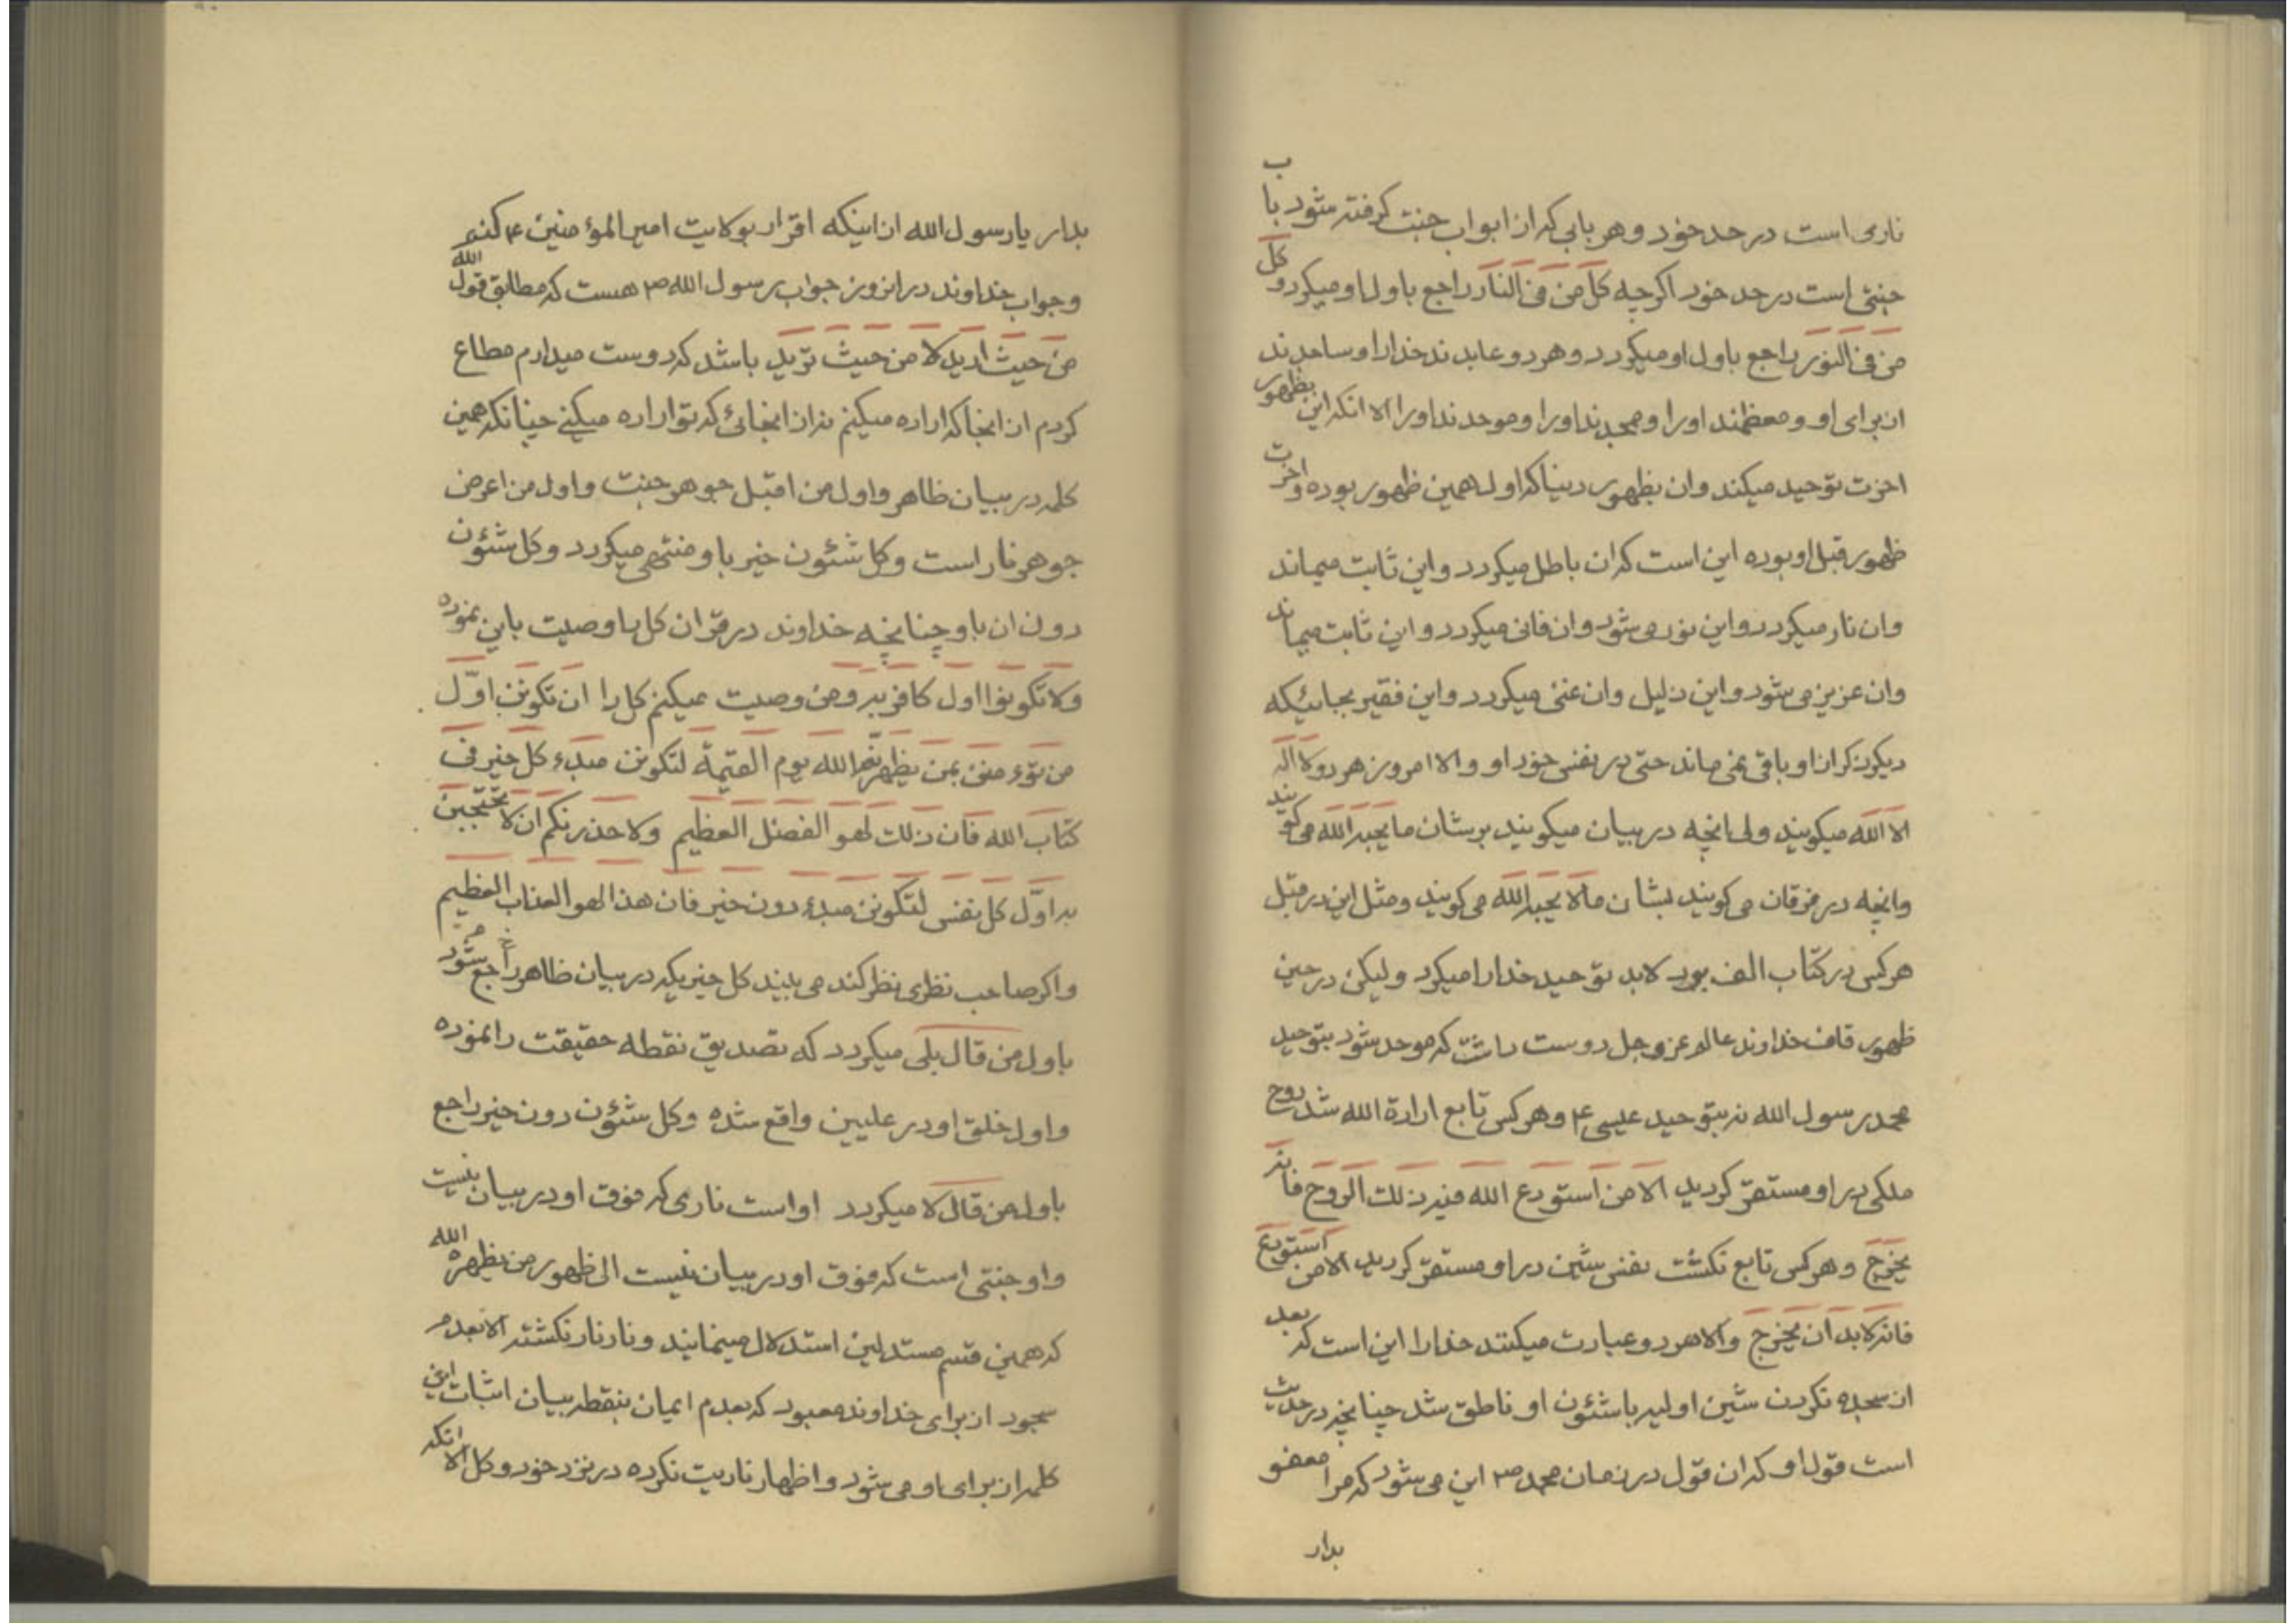 ناری است در حد خود و هر بابی که از ابواب جنت کرفته شود باب
جنتی است در حد خود اکرچه کل من فی النار راجع باول او میکردد و کل
من فی النور راجع باول او میکردد و هر دو عابدند خدارا و ساجدند
از برای او و معظمند او را و ممجدند او را و موحدند او را الا انکه این بظهور
اخرت توحید میکند و ان بظهور دنیا که اول همین ظهور بوده و اخرت
ظهور قبل او بوده این است که ان باطل میکردد و این ثابت میماند
وان نار میکردد و این نور می شود وان فانی میکردد و این ثابت میماند
وان عزیز می شود و این ذلیل وان غنی میکردد و این فقیر بجائیکه
دیکر ذکر از او باقی نمی ماند حتی در نفس خود او والا امروز هر دو لا اله
الا الله میکویند ولی انچه در بیان میکویند بر شان ما یحبه الله می کویند
وانچه در فرقان می کویند بشان ما لا یحبه الله می کویند و مثل این در قبل
هر کس در کتاب الف بود لابد توحید خدا را میکرد ولیکن در حین
ظهور قاف خداوند عالم عز و جل دوست داشت که موحد شود بتوحید
محمد رسول الله نه بتوحید عیسی ع و هر کس تابع ارادة الله شد روح
ملکی در او مستقر کردید الا من استودع الله فیه ذلك الروح فانه
یخرج و هر کس تابع نکشت نفس شین در او مستقر کردید الا من استودع
فانه لابد ان یخرج والا هر دو عبارت میکنند خدارا این است که بعد
از سجده نکردن شین اولیه باشئون او ناطق شد چنانچه در حدیث
است قول او که ان قول در زمان محمد ص این می شود که مرا معفو
بدار
بدار یا رسول الله از اینکه اقرار بولایت امیر المؤمنین ع کنم
و جواب خداوند در انروز جواب رسول الله ص هست که مطابق قول الله
من حیث ارید لا من حیث ترید باشد که دوست میدارم مطاع
کردم از انجا که اراده میکنم نه از انجائی که تو اراده میکنی چنانکه همین
کلمه در بیان ظاهر و اول من اقبل جوهر جنت و اول من اعرض
جوهر نار است و کل شئون خیر باو منتهی میکردد و کل شئون
دون ان باو چنانچه خداوند در قران کل را وصیت باین نموده
ولا تکونوا اول کافر به و من وصیت میکنم کل را ان تکونن اوّل
من تؤمنن بمن یظهرنّه الله یوم القیمة لتکونن مبدء کل خیر فی
کتاب الله فان ذلك لهو الفضل العظیم ولاحذرنکم ان لا تحتجبن
به اوّل کل نفس لتکونن مبدء دون خیر فان هذا لهو العذاب العظیم
واکر صاحب نظری نظر کند می بیند کل خیریکه در بیان ظاهر راجع شود
باول من قال بلی میکردد که تصدیق نقطه حقیقت را نموده
و اول خلق او در علیین واقع شده و کل شئون دون خیر راجع
باول من قال لا میکردد او است ناری که فوق او در بیان نیست
و او جنتی است که فوق او در بیان نیست الی ظهور من یظهره الله
که همین قسم مستدلین استدلال مینمایند و نار نار نکشته الا بعدم
سجود از برای خداوند معبود که بعدم ایمان بنقطه بیان اثبات این
کلمه از برای او می شود و اظهار ناریت نکرده در نزد خود و کل الا انکه